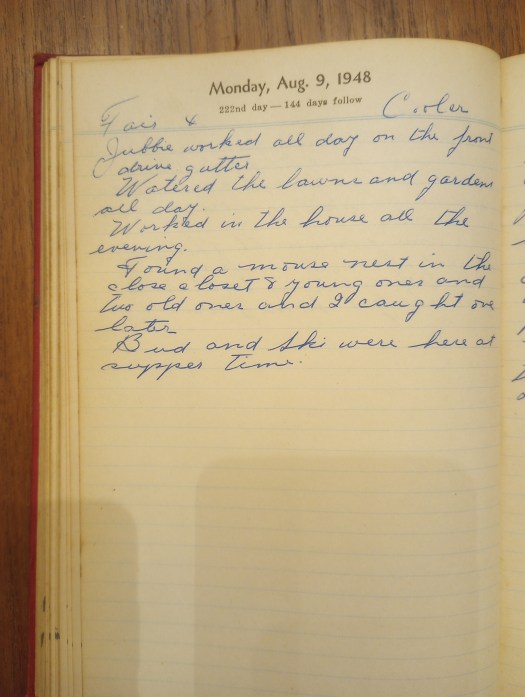 Monday, Aug. 9, 1948
222nd day — 144 days follow
Fair & Cooler
Jubbie worked all day on the front
drive gutter
Watered the lawns and gardens
all day.
Worked in the house all the
evening.
Found a mouse nest in the
close closet 8 young ones and
two old ones and I caught one
later
Bud and Ski were here at
supper time.